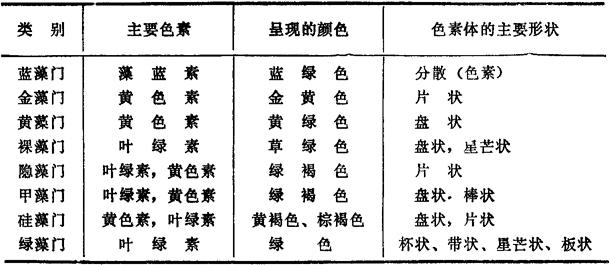 类 别 主要色素 呈现的颜色 色素体的主要形状
蓝藻门 藻 蓝 素 蓝 绿 色 分散（色素）
金藻门 黄 色 素 金 黄 色 片 状
黄藻门 黄 色 素 黄 绿 色 盘 状
裸藻门 叶 绿 素 草 绿 色 盘状，星芒状
隐藻门 叶绿素，黄色素 绿 褐 色 片 状
甲藻门 叶绿素，黄色素 绿 褐 色 盘状．棒状
硅藻门 黄色素，叶绿素 黄褐色、棕褐色 盘状，片状
绿藻门 叶 绿 素 绿 色 杯状、带状、星芒状、板状